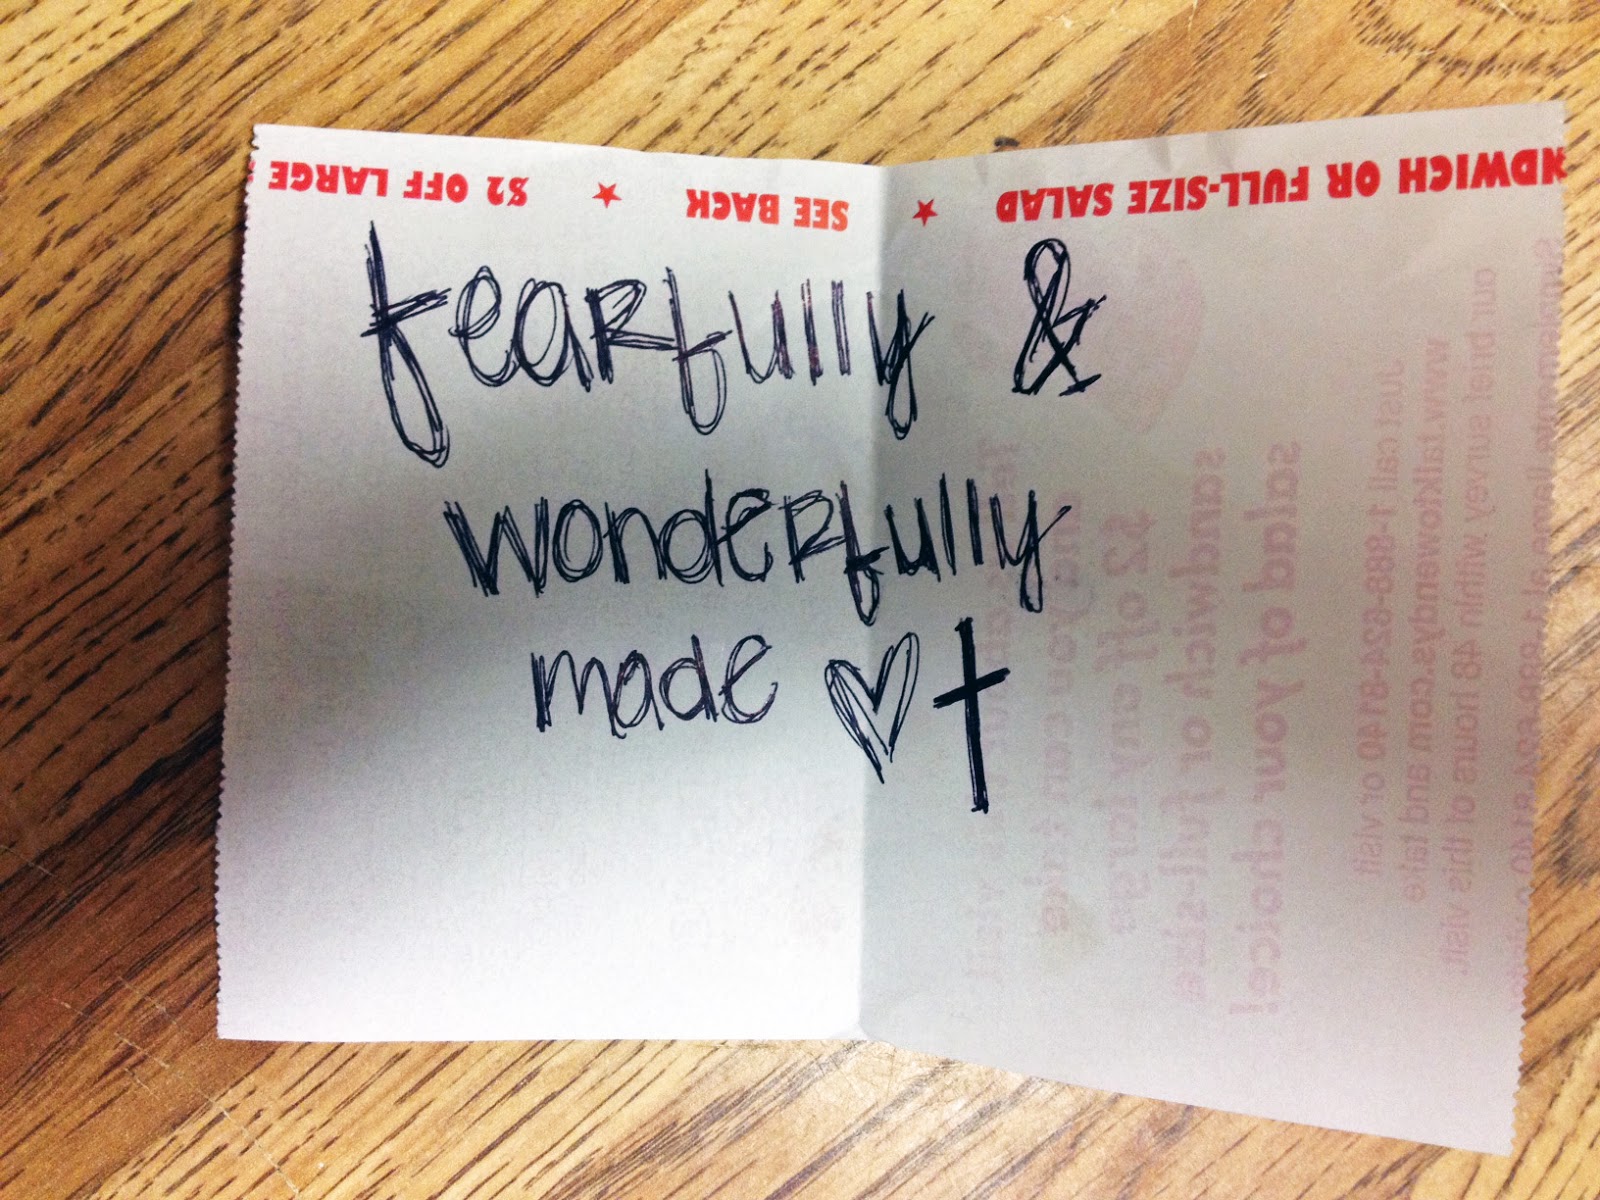 $2 OFF LARGE ★ SEE BACK ★ NDWICH OR FULL-SIZE SALAD
fearfully &
wonderfully
made ♡ †
$2 off any large
sandwich or full-size
salad of your choice!
Just call 1-888-624-8140 or visit
www.talktowendys.com and take
our brief survey within 48 hours of this visit.